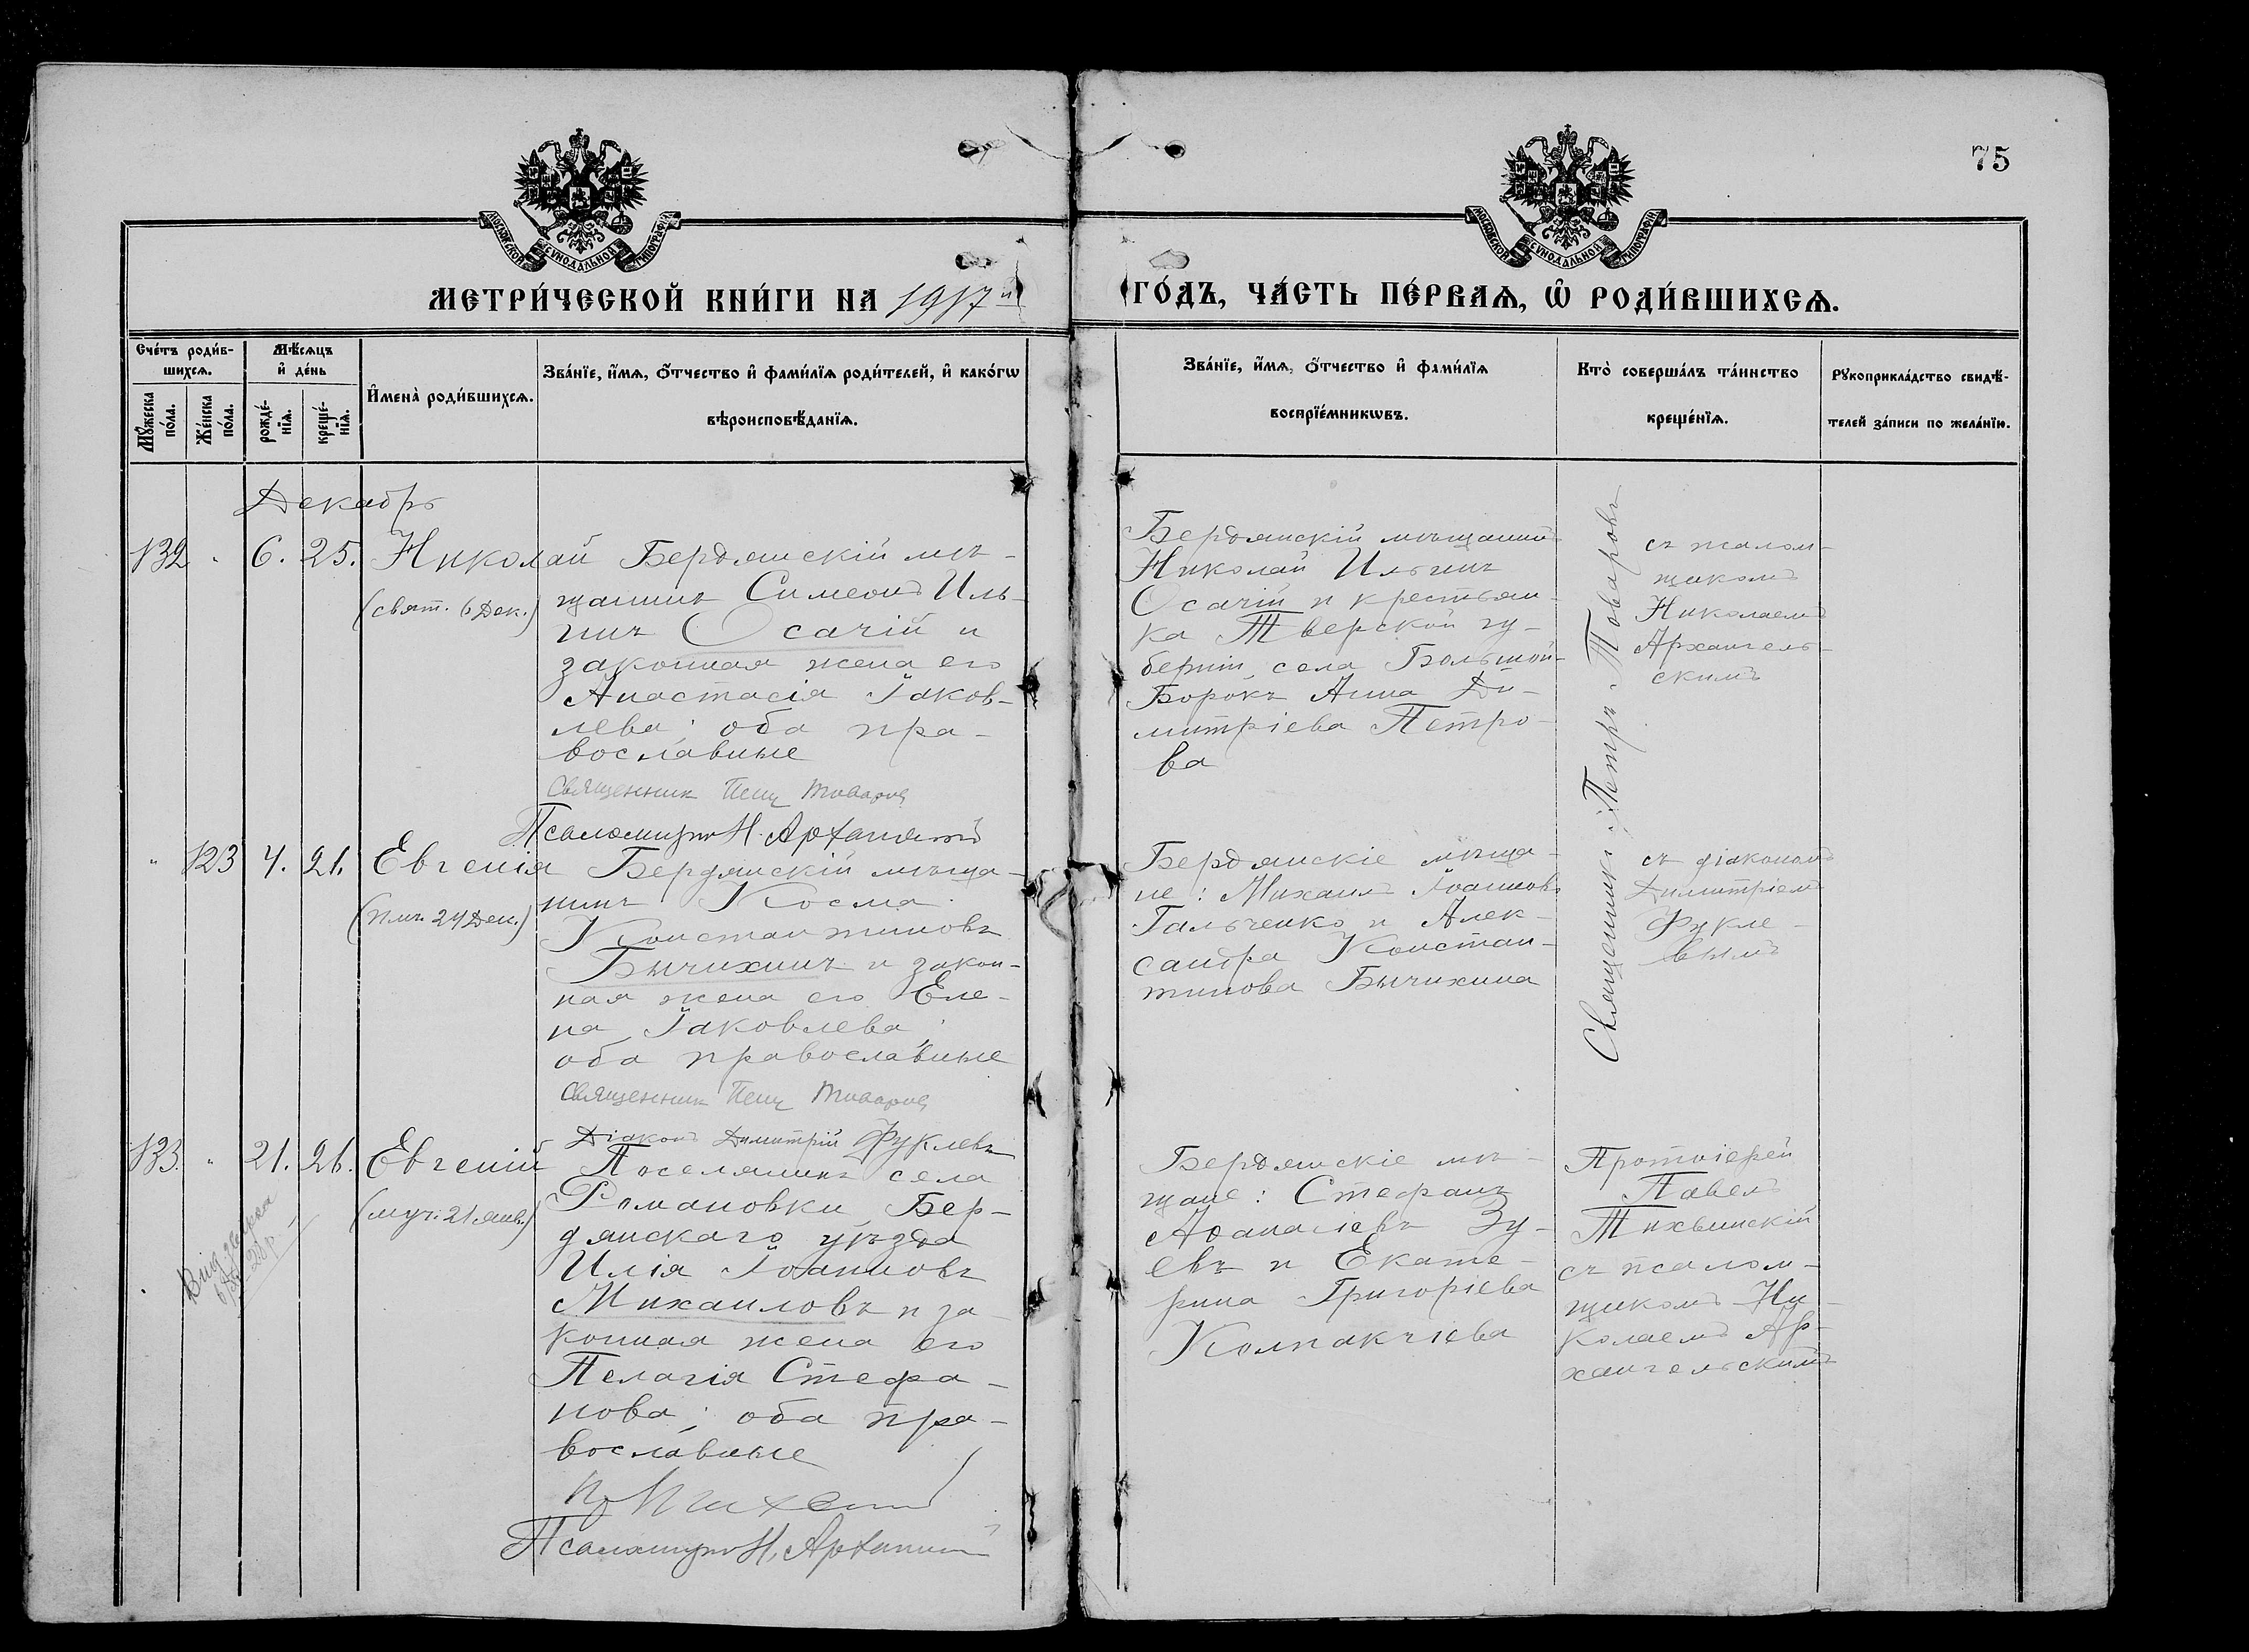 75
МОСКОВСКОЙ СѴНОДАЛЬНОЙ ТИПОГРАФІИ
МОСКОВСКОЙ СѴНОДАЛЬНОЙ ТИПОГРАФІИ
МЕТРИ́ЧЕСКОЙ КНИ́ГИ НА 1917 й
ГО́ДЪ, ЧА́СТЬ ПЕ́РВАѦ, Ѡ҆ РОДИ́ВШИХСѦ.
Сче́тъ роди́в-
шихсѧ.
Мꙋ́жеска по́ла.
Же́нска по́ла.
Мѣ́сѧцъ и҆ де́нь
рожде́-
нїѧ.
креще́-
нїѧ.
И҆мена̀ роди́вшихсѧ.
Зва́нїе, и҆́мѧ, ѻ҆́тчество и҆ фами́лїѧ роди́телей, и҆ како́гѡ
вѣроисповѣ́данїѧ.
Зва́нїе, и҆́мѧ, ѻ҆́тчество и҆ фами́лїѧ
воспрїе́мникѡвъ.
Кто̀ соверша́лъ та́инство
креще́нїѧ.
Рꙋкоприкла́дство свидѣ́-
телей за́писи по жела́нїю.
Декабрь
132 " 6. 25. Николай
(свят. 6 Дек.)
Бердянскій мѣ-
щанинъ Симеонъ Иль-
инъ Осачій и
законная жена его
Анастасія Іаков-
лева; оба пра-
вославные
Священник Петр Товаров
Псаломщикъ Н. Архангельскій
Бердянскій мѣщанинъ
Николай Ильинъ
Осачій и крестьян-
ка Тверской гу-
берніи, села Большой-
Борокъ Анна Ди-
митріева Петро-
ва
Священникъ Петръ Товаровъ
съ псалом-
щикомъ
Николаемъ
Архангель-
скимъ
" 123 4. 21. Евгенія
(пмч. 24 Дек.)
Бердянскій мѣща-
нинъ Косма
Константиновъ
Бычихинъ и закон-
ная жена его Еле-
на Іаковлева;
оба православные
Священник Петр Товаров
Діаконъ Димитрій Фуклевъ
Бердянскіе мѣща-
не: Михаилъ Іоанновъ
Гальченко и Алек-
сандра Констан-
тинова Бычихина
съ діакономъ
Димитріемъ
Фукле-
вымъ
133. " 21. 26. Евгеній
(муч. 21 янв.)
Поселянинъ села
Романовки Бер-
дянскаго уѣзда
Илія Іоанновъ
Михаиловъ и за-
конная жена его
Пелагія Стефа-
нова; оба пра-
вославные
Псаломщикъ Н. Архангельскій
Бердянскіе мѣ-
щане: Стефанъ
Аѳанасіевъ Зу-
евъ и Екате-
рина Григоріева
Колпакчіева
Протоіерей
Павелъ
Тихвинскій
съ псалом-
щикомъ Ни-
колаемъ Ар-
хангельскимъ